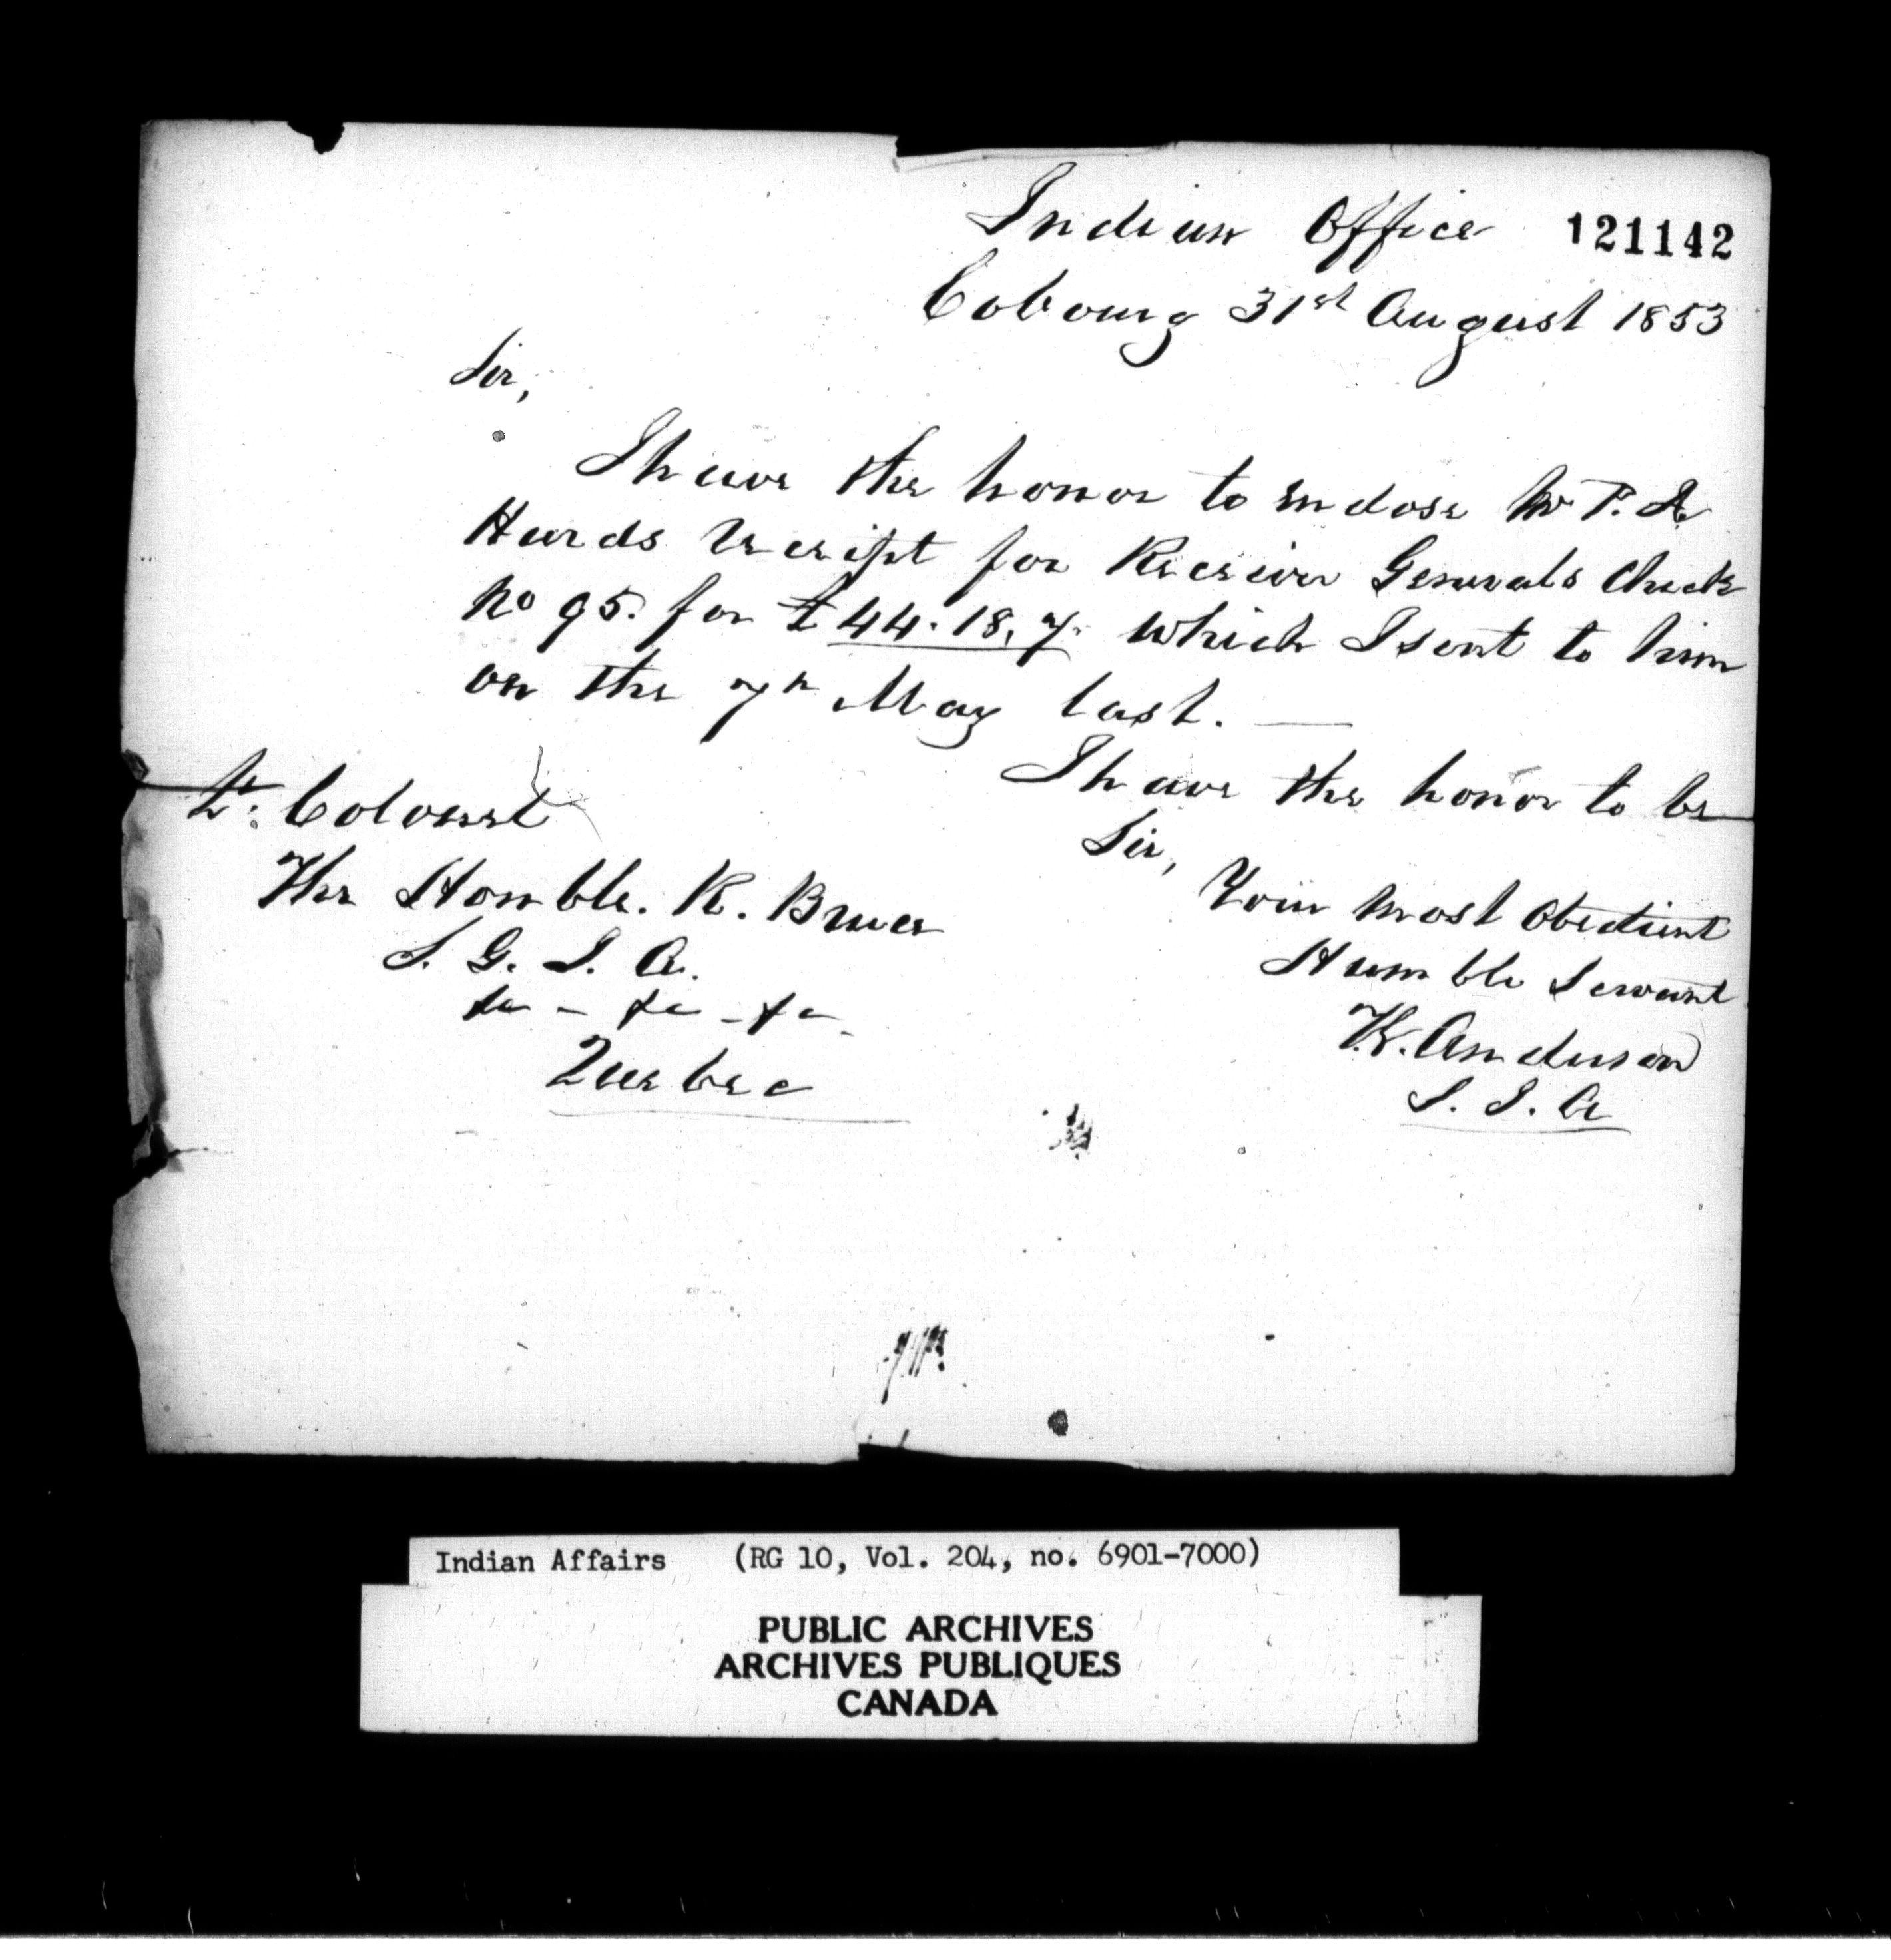 Indian Office 121142
Cobourg 31st August 1853
Sir,
I have the honor to enclose Mr T. A.
Hurds receipt for Receiver Generals Check
No 95. for £44.18.7. which I sent to him
on the 7th May last. —
I have the honor to be
Sir,
Your most obedient
Humble Servant
Anderson
S. I. A
Lt. Colonel
The Honble. R. Bruce
S. G. I. A.
&c - &c - &c -
Quebec
Indian Affairs (RG 10, Vol. 204, no. 6901-7000)
PUBLIC ARCHIVES
ARCHIVES PUBLIQUES
CANADA